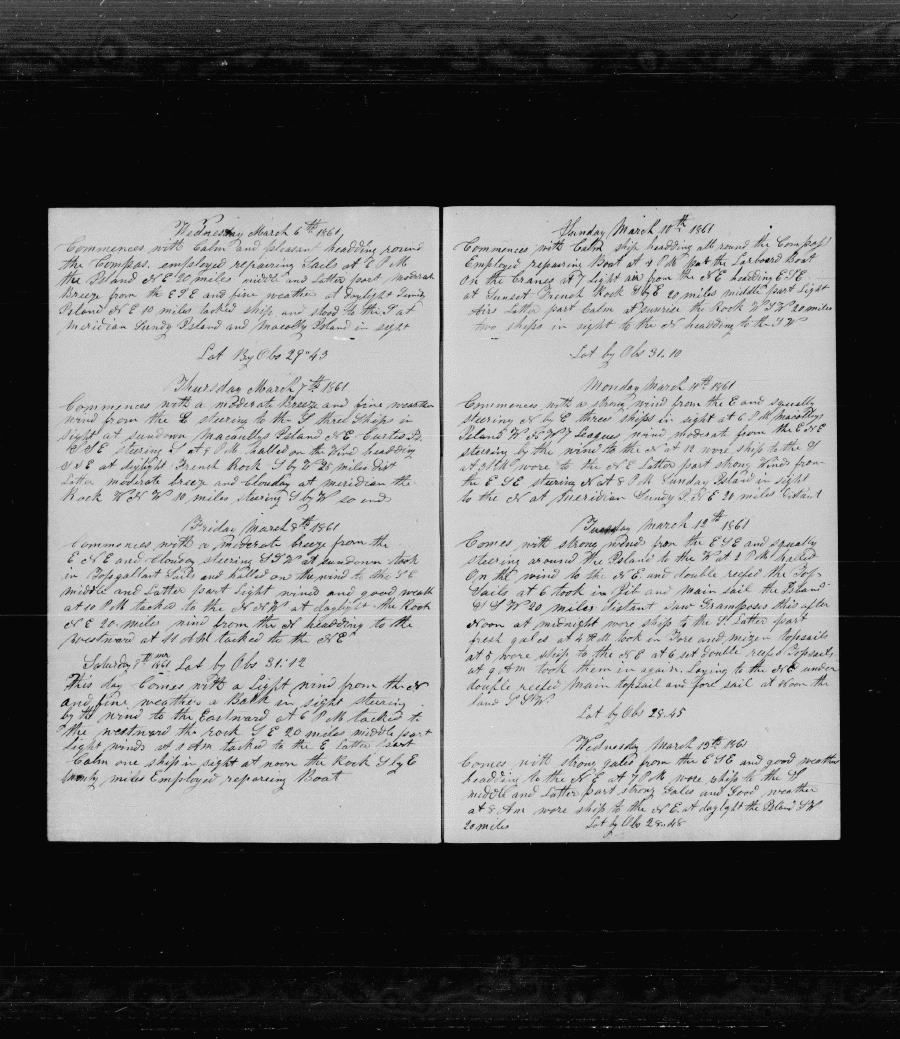 Wednesday March 6th 1861
Commences with Calm and pleasant headding round
the Compas. employed repairing Sails at 7 P M
the Island N E 20 miles middle and Latter part moderate
Breeze from the E S E and fine weather at daylight Sundy
Island N E 10 miles tacked ship and stood to the S at
meridian Sundy Island and Macolly Island in sight
Lat By Obs 29-43
Thursday March 7th 1861
Commences with a moderate Breeze and fine weather
wind from the E steering to the S three Ships in
sight at sundown Macaullys Island N E Curtes Is.
S E steering S at 9 P M halled on the Wind headding
S S E at daylight French Rock S by W 25 miles Dist
Latter moderate breeze and Clouday at meridian the
Rock W N W 10 miles steering S by W so end
Friday March 8th 1861
Commences with a moderate breeze from the
E N E and Clouday steering S S W at sundown took
in Topsgallant Sails and halled on the wind to the S E
middle and Latter part Light winds and good weath
at 10 P M tacked to the N N W at daylight the Rock
N E 20 miles wind from the N headding to the
westward at 11 A M tacked to the N E
Saturday 9th mr 1861 Lat by Obs 31-12
This day Comes with a Light wind from the N
and fine weather a Bark in sight steering
by the wind to the Eastward at 6 P M tacked to
the westward the rock S E 20 miles middle part
Light winds at 1 A M tacked to the E Latter part
Calm one ship in sight at noon the Rock S by E
twenty miles Employed reparing Boat
Sunday March 10th 1861
Commences with Calm ship headding all round the Compass
Employed repairin Boat at 4 P M put the Larboard Boat
On the Cranes at 7 Light air from the N E headding E S E
at Sunset French Rock S by E 20 miles middle part Light
Airs Latter part Calm at Sunrise the Rock W S W 20 miles
two ships in sight to the N headding to the S W
Lat by Obs 31-10
Monday March 11th 1861
Commences with a strong wind from the E and squally
steering N by E three ships in sight at 6 P M Macollys
Island W N W 7 Leagues wind moderate from the E N E
steering by the wind to the N at 12 wore ship to the S
at 3 A M wore to the N E Latter part strong Winds from
the E S E steuring N at 8 P M Sunday Island in sight
to the N at Meridian Sundy I N E 20 miles Distant
Tuesday March 12th 1861
Comes with strong winds from the E S E and squally
steering around the Island to the W at 2 P M halled
On the wind to the N E and double reefed the Top-
Sails at 6 took in Jib and main sail the Island
S W 20 miles Distant Saw Grampuses this after
Noon at midnight wore ship to the S Latter part
fresh gales at 4 A M took in Fore and mizen topsails
at 5 wore ship to the N E at 6 set double reefd Topsails
at 9 Am took them in again. Laying to the N E under
double reefed Main topsail and fore sail at Noon the
land S S W.
Lat by Obs 28-45
Wednesday March 13th 1861
Comes with strong gales from the E S E and good weather
headding to the N E at 7 P M wore ship to the S
middle and Latter part strong Gales and Good weather
at 8 Am wore ship to the N E. at daylight the Island S W
20 miles Lat by Obs 28-48